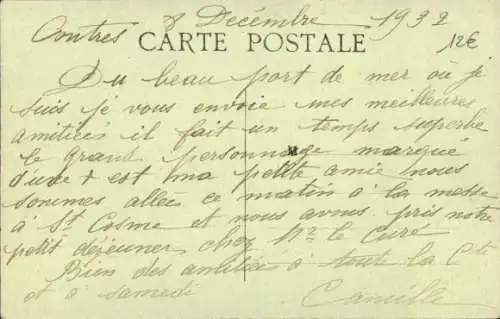 Contres 8 Décembre 1932
12€
CARTE POSTALE
Du beau port de mer où je
suis je vous envoie mes meilleures
amitiées il fait un temps superbe
le grand personnage marqué
d'une + est ma petite amie nous
sommes allées ce matin à la messe
à St Cosme et nous avons pris notre
petit déjeuner chez Mr le Curé
Bien des amitiées à toute la Cte
et à samedi Camille